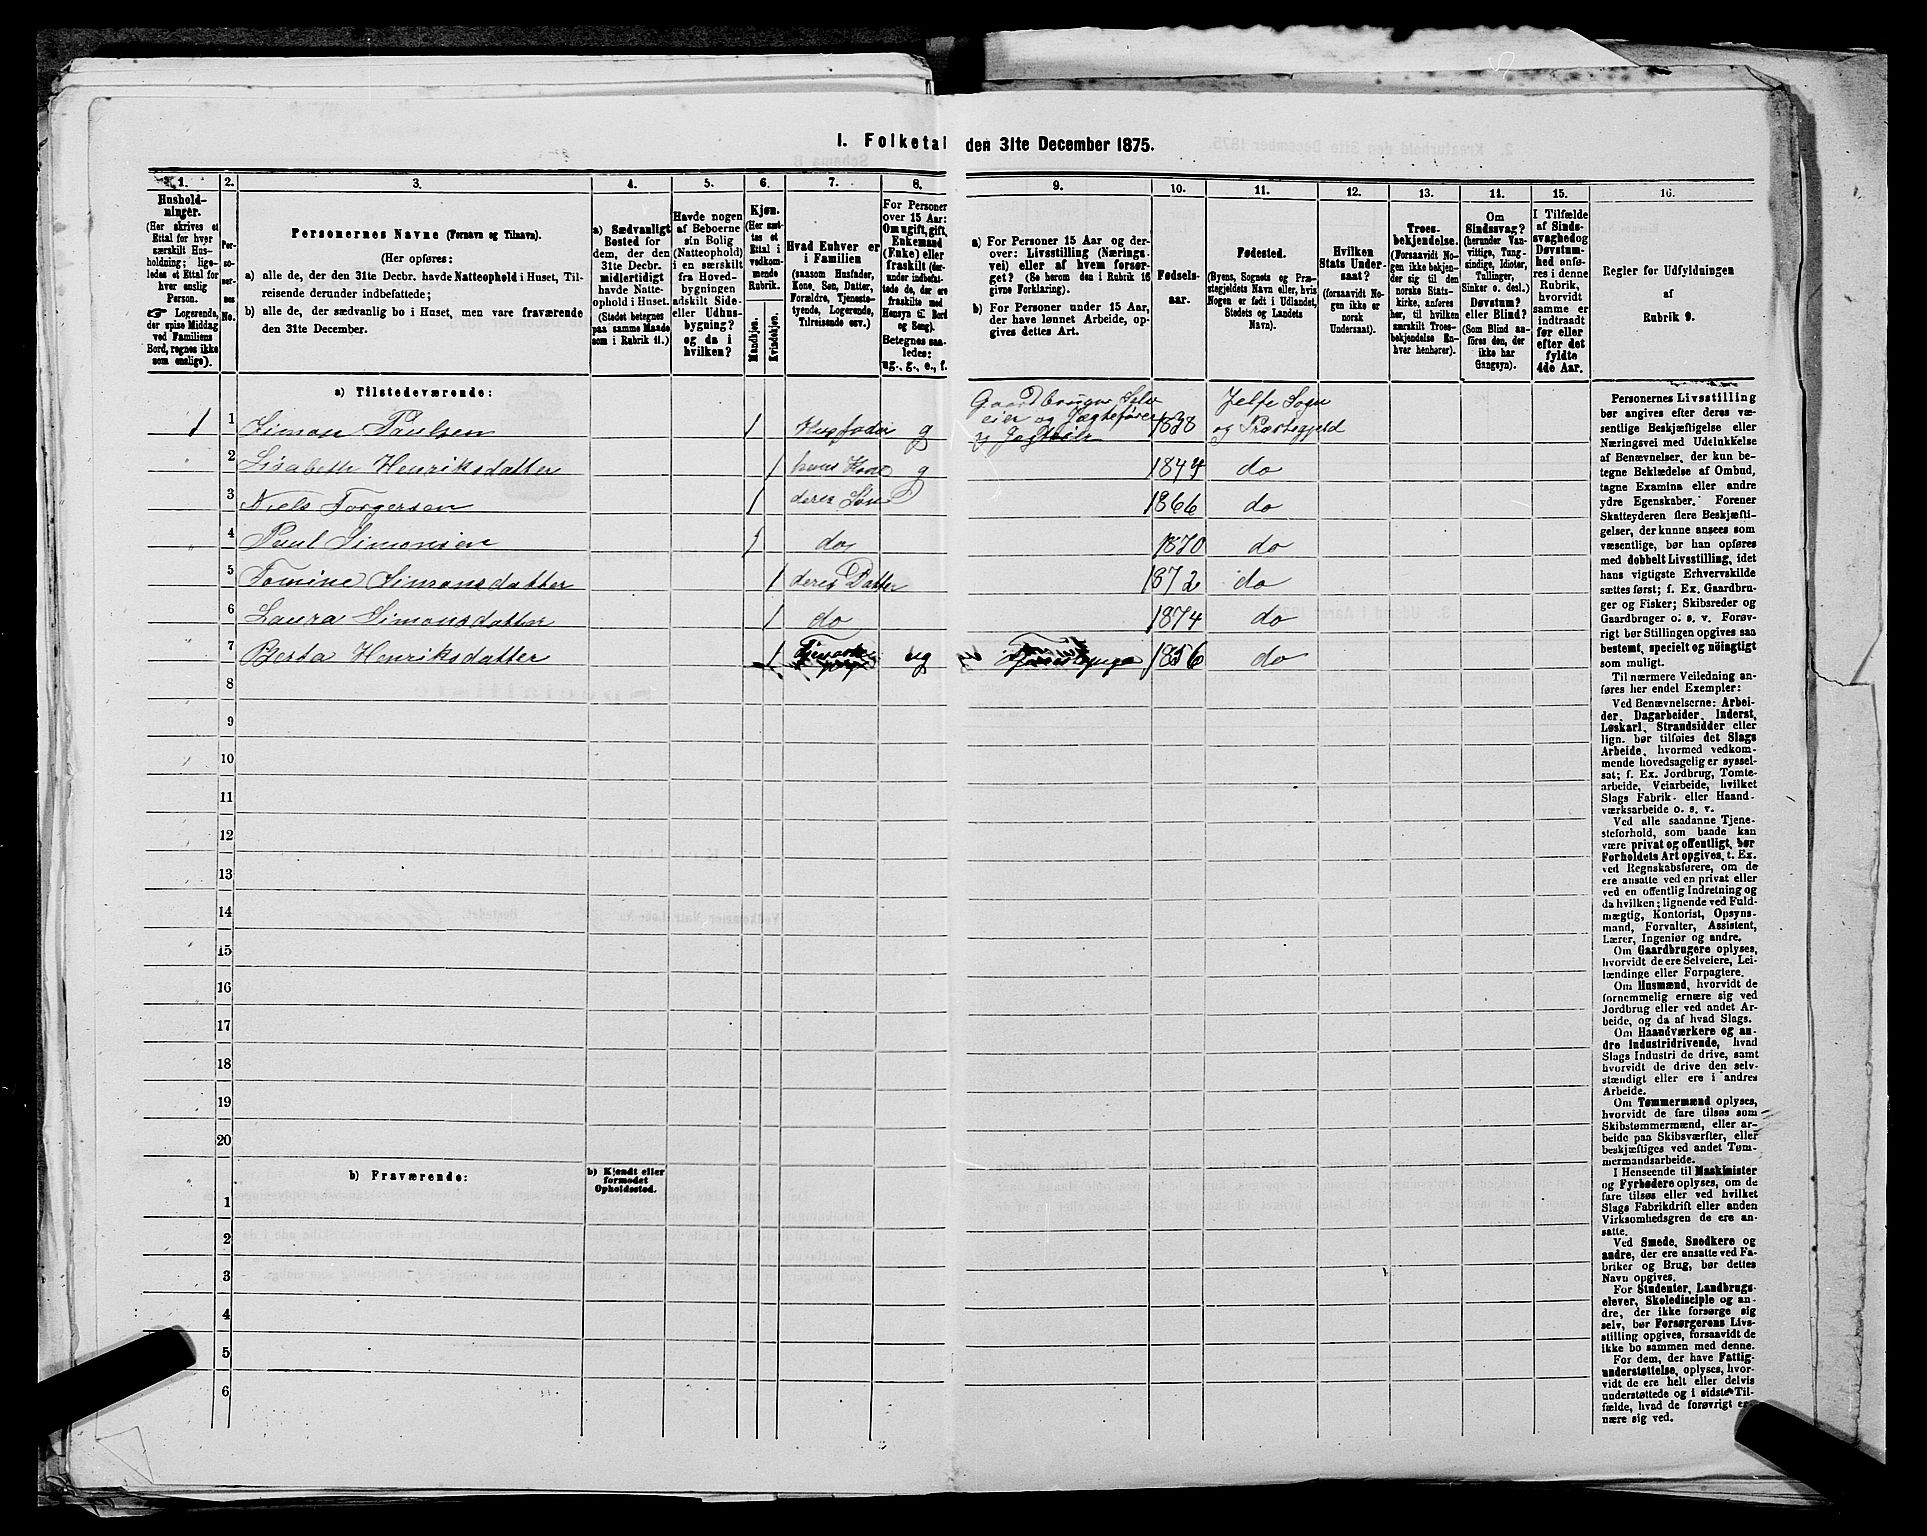 I. Folketal den 31te December 1875.
1. 2. 3. 4. 5. 6. 7. 8. 9. 10. 11. 12. 13. 14. 15. 16.
Hushold-
ninger.
(Her skrives et
Ettal for hver
særskilt Hus-
holdning; lige-
ledes et Ettal for
hver enslig
Person.
☛ Logerende,
der spise Middag
ved Familiens
Bord, regnes ikke
som enslige).
Per-
so-
ner-
nes
No.
Personernes Navne (Fornavn og Tilnavn).
(Her opføres:
a) alle de, der den 31te Decbr. havde Natteophold i Huset, Til-
reisende derunder indbefattede;
b) alle de, der sædvanlig bo i Huset, men vare fraværende
den 31te December.
a) Sædvanligt
Bosted for
dem, der den
31te Decbr.
midlertidigt
havde Natte-
ophold i Huset.
(Stedet betegnes
paa samme Maade
som i Rubrik 11.)
Havde nogen
af Beboerne
sin Bolig
(Natteophold)
i en særskilt
fra Hoved-
bygningen
adskilt Side-
eller Udhus-
bygning?
og da i
hvilken?
Kjøn.
(Her sæt-
tes et
Ettal i
vedkom-
mende
Rubrik.
Mandkjøn.
Kvindekjøn.
Hvad Enhver er
i Familien
(saasom Husfader,
Kone, Søn, Datter,
Forældre, Tjeneste-
tyende, Logerende,
Tilreisende osv.)
For Personer
over 15 Aar:
Om ugift, gift,
Enkemand
(Enke) eller
fraskilt (der-
under indbefat-
tede de, der ere
fraskilte med
Hensyn til Bord
og Seng).
Betegnes saa-
ledes:
ug., g., e., f.
a) For Personer 15 Aar og der-
over: Livsstilling (Nærings-
vei) eller af hvem forsør-
get? (Se herom den i Rubrik 16
givne Forklaring).
b) For Personer under 15 Aar,
der have lønnet Arbeide, op-
gives dettes Art.
Fødsels-
aar.
Fødested.
(Byens, Sognets og Præ-
stegjeldets Navn eller, hvis
Nogen er født i Udlandet,
Stedets og Landets
Navn).
Hvilken
Stats Under-
saat?
(forsaavidt No-
gen ikke er
norsk
Undersaat).
Troes-
bekjendelse.
(Forsaavidt No-
gen ikke bekjen-
der sig til den
norske Stats-
kirke, anføres
her, til hvilken
særskilt Troes-
bekjendelse En-
hver henhører).
Om
Sindssvag?
(herunder Van-
vittige, Tung-
sindige, Idioter,
Tullinger,
Sinker o. desl.)
Døvstum?
eller Blind?
(Som Blind an-
føres den, der
ikke har
Gangsyn).
I Tilfælde
af Sinds-
svaghed og
Døvstum-
hed enfø-
res i denne
Rubrik,
hvorvidt
samme er
indtraadt
før eller
efter det
fyldte
4de Aar.
Regler for Udfyldningen
af
Rubrik 9.
a) Tilstedeværende:
1 1 Simon Paulsen 1 Husfader g Gaardbruger Selv
eier og Jægtefører 1838 Jelse Sogn
og Præstegjeld
2 Lisabeth Henriksdatter 1 hans Kone g 1844 do
3 Niels Torgersen 1 deres Søn 1866 do
4 Paul Simonsen 1 do 1870 do
5 Tomine Simonsdatter 1 deres Datter 1872 do
6 Laura Simonsdatter 1 do 1874 do
7 Berta Henriksdatter 1 ug 1856 do
8
9
10
11
12
13
14
15
16
17
18
19
20
b) Fraværende:
b) Kjendt eller
formodet
Opholdssted.
1
2
3
4
5
6
Personernes Livsstilling
bør angives efter deres væ-
sentlige Beskjæftigelse eller
Næringsvei med Udelukkelse
af Benævnelser, der kun be-
tegne Beklædelse af Ombud,
tagne Examina eller andre
ydre Egenskaber. Forener
Skatteyderen flere Beskjæfti-
gelser, der kunne ansees som
væsentlige, bør han opføres
med dobbelt Livsstilling, idet
hans vigtigste Erhvervskilde
sættes først; f. Ex. Gaardbru-
ger og Fisker; Skibsreder og
Gaardbruger o. s. v. Forøv-
rigt bør Stillingen opgives saa
bestemt, specielt og nøiagtigt
som muligt.
Til nærmere Veiledning an-
føres her endel Exempler:
Ved Benævnelserne: Arbei-
der, Dagarbeider, Inderst,
Løskarl, Strandsidder eller
lign. bør tilføies det Slags
Arbeide, hvormed vedkom-
mende hovedsagelig er syssel-
sat; f. Ex. Jordbrug, Tomte-
arbeide, Veiarbeide, hvilket
Slags Fabrik- eller Haand-
værksarbeide o. s. v.
Ved alle saadanne Tjene-
steforhold, som baade kan
være privat og offentligt, bør
Forholdets Art opgives, t. Ex.
ved Regnskabsførere, om de
ere ansatte ved en privat eller
ved en offentlig Indretning og
da hvilken; lignende ved Fuld-
mægtig, Kontorist, Opsyns-
mand, Forvalter, Assistent,
Lærer, Ingeniør og andre.
Om Gaardbrugere oplyses,
hvorvidt de ere Selveiere, Lei-
lændinge eller Forpagtere.
Om Husmænd, hvorvidt de
fornemmelig ernære sig ved
Jordbrug eller ved andet Ar-
beide, og da af hvad Slags.
Om Haandværkere og an-
dre Industridrivende, hvad
Slags Industri de drive, samt
hvorvidt de drive den selv-
stændigt eller ere i andres
Arbeide.
Om Tømmermænd oplyses,
hvorvidt de fare tilsøs som
Skibstømmermænd, eller ar-
beide paa Skibsværfter, eller
beskjæftiges ved andet Tøm-
mermandsarbeide.
I Henseende til Maskinister
og Fyrbødere oplyses, om de
fare tilsøs eller ved hvilket
Slags Fabrikdrift eller anden
Virksomhedsgren de ere an-
satte.
Ved Smede, Snedkere og
andre, der ere ansatte ved Fa-
briker og Brug, bør dettes
Navn opgives.
For Studenter, Landbrugs-
elever, Skoledisciple og an-
dre, der ikke forsørge sig
selv, bør Forsørgerens Livs-
stilling opgives, forsaavidt de
ikke bo sammen med denne.
For dem, der have Fattig-
understøttelse, oplyses, hvor-
vidt de ere helt eller delvis
understøttede og i sidste Til-
fælde, hvad de forøvrigt er-
nære sig ved.